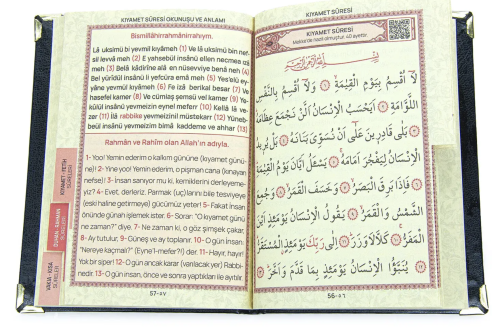 KIYAMET SÛRESİ OKUNUŞU VE ANLAMI
Bismillâhirrahmânirrahym.
Lâ uksimü bi yevmil kıyâmeh (1) Ve lâ uksimü bin nef-
sil levvâ meh (2) E yahsebül insânü ellen necmea ızâ
meh (3) Belâ kâdirîne alâ en nüsevviye benâ neh (4)
Bel yürîdül insânü li yefcüra emâ meh (5) Yes'elü ey-
yâne yevmül kıyâmeh (6) Fe izâ berikal besar (7) Ve
hasefel kamer (8) Ve cümiaş şemsü vel kamer (9) Ye-
kûlül insânü yevmeizin eynel mefer (10) Kellâ lâ ve-
zer (11) İlâ rabbike yevmeizinil müstekarr (12) Yüneb-
beül insânü yevmeizim bimâ kaddeme ve ahhar (13)
Rahmân ve Rahîm olan Allah'ın adıyla.
1- Yoo! Yemin ederim o kalkım gününe (kıyamet günü-
ne)! 2- Yine yoo! Yemin ederim, o pişman cana (kınayan
nefse): 3- İnsan sanıyor mu ki, kemiklerini derleyeme-
yiz? 4- Evet, derleriz. Parmak (uç)larını bile tesviyeye
(eski haline getirmeğe) gücümüz yeter! 5- Fakat insan
önünde günah işlemek ister. 6- Sorar: "O kıyamet günü
ne zaman?" diye. 7- Ne zaman ki, o göz şimşek çakar.
8- Ay tutulur. 9- Güneş ve ay toplanır. 10- O gün insan:
"Nereye kaçmalı?" (Eyne'l-mefer?!) der. 11- Hayır, hayır!
Yok bir siper! 12- O gün ancak karar (varılacak yer) Rabbi-
nedir. 13- O gün insan, önce ve sonra yaptıkları ile ayıtılır.
57-٥٧
KIYAMET -FETİH
SÛRELERİ
DUHAN, RAHMAN
SÛRELERİ
VAKIA - KISA
SÛRELER
KIYAMET SÛRESİ
KIYAMET SÛRESİ
Mekke'de nazil olmuştur, 40 ayettir.
بِسْمِ اللَّهِ الرَّحْمَٰنِ الرَّحِيمِ
لَا أُقْسِمُ بِيَوْمِ الْقِيٰمَةِ ﴿١﴾ وَلَا أُقْسِمُ بِالنَّفْسِ
اللَّوَّامَةِ ﴿٢﴾ اَيَحْسَبُ الْاِنْسَانُ اَلَّنْ نَجْمَعَ عِظَامَهُ
﴿٣﴾ بَلٰى قَادِرِينَ عَلٰى اَنْ نُسَوِّىَ بَنَانَهُ ﴿٤﴾ بَلْ يُرِيدُ
الْاِنْسَانُ لِيَفْجُرَ اَمَامَهُ ﴿٥﴾ يَسْـَٔلُ اَيَّانَ يَوْمُ الْقِيٰمَةِ
﴿٦﴾ فَاِذَا بَرِقَ الْبَصَرُ ﴿٧﴾ وَخَسَفَ الْقَمَرُ ﴿٨﴾ وَجُمِعَ
الشَّمْسُ وَالْقَمَرُ ﴿٩﴾ يَقُولُ الْاِنْسَانُ يَوْمَئِذٍ اَيْنَ
الْمَفَرُّ ﴿١٠﴾ كَلَّا لَا وَزَرَ ﴿١١﴾ اِلٰى رَبِّكَ يَوْمَئِذٍ الْمُسْتَقَرُّ
﴿١٢﴾ يُنَبَّؤُا الْاِنْسَانُ يَوْمَئِذٍ بِمَا قَدَّمَ وَاَخَّرَ ﴿١٣﴾
56-٥٦